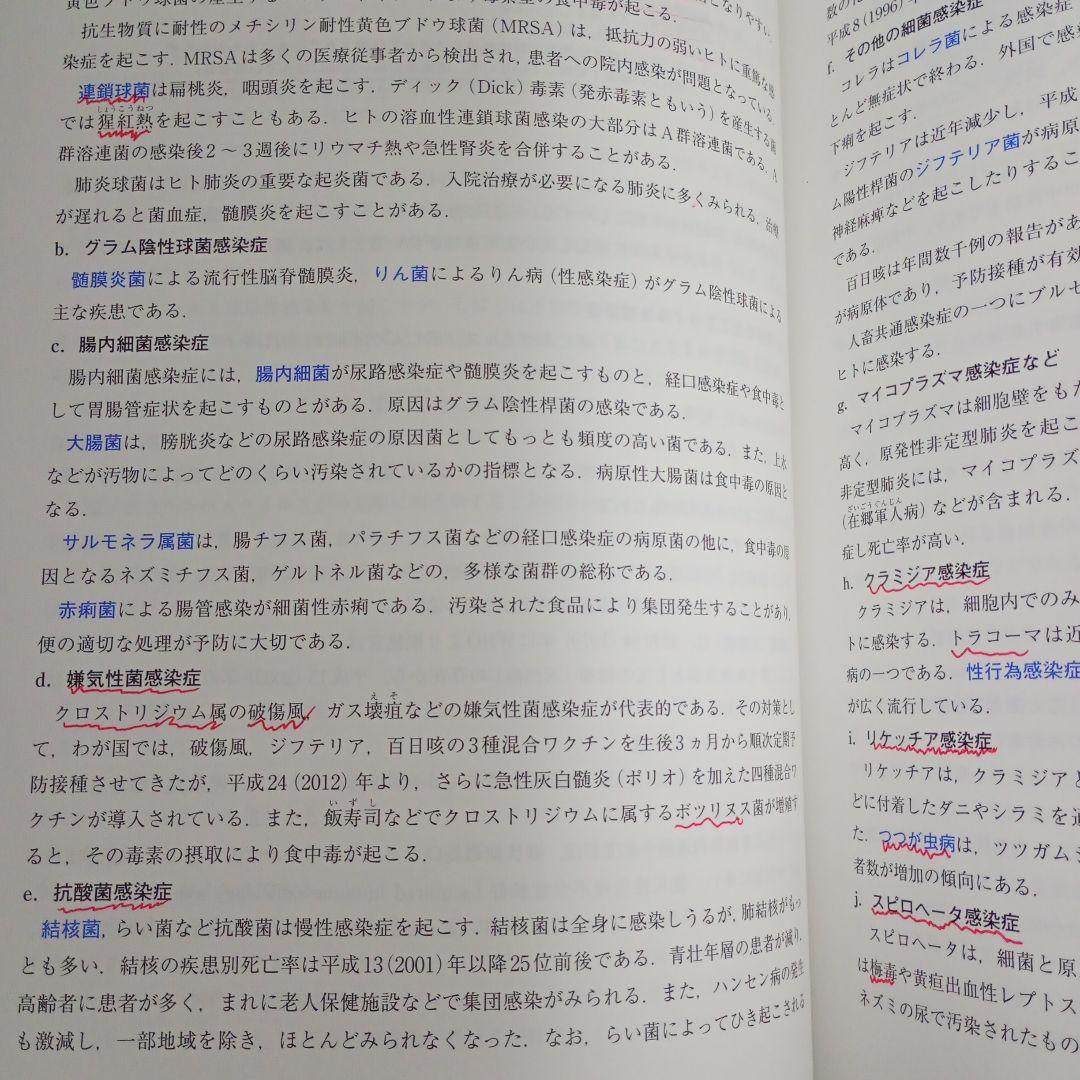 抗生物質に耐性のメチシリン耐性黄色ブドウ球菌（MRSA）は，抵抗力の弱いヒトに重篤な感
染症を起こす．MRSAは多くの医療従事者から検出され，患者への院内感染が問題となっている．
連鎖球菌は扁桃炎，咽頭炎を起こす．ディック（Dick）毒素（発赤毒素ともいう）を産生する菌
しょうこうねつ
では猩紅熱を起こすこともある．ヒトの溶血性連鎖球菌感染の大部分はA群溶連菌である．A
群溶連菌の感染後2～3週後にリウマチ熱や急性腎炎を合併することがある．
肺炎球菌はヒト肺炎の重要な起炎菌である．入院治療が必要になる肺炎に多くみられる．治療
が遅れると菌血症，髄膜炎を起こすことがある．
b．グラム陰性球菌感染症
髄膜炎菌による流行性脳脊髄膜炎，りん菌によるりん病（性感染症）がグラム陰性球菌による
主な疾患である．
c．腸内細菌感染症
腸内細菌感染症には，腸内細菌が尿路感染症や髄膜炎を起こすものと，経口感染症や食中毒と
して胃腸管症状を起こすものとがある．原因はグラム陰性桿菌の感染である．
大腸菌は，膀胱炎などの尿路感染症の原因菌としてもっとも頻度の高い菌である．また，上水
などが汚物によってどのくらい汚染されているかの指標となる．病原性大腸菌は食中毒の原因と
なる．
サルモネラ属菌は，腸チフス菌，パラチフス菌などの経口感染症の病原菌の他に，食中毒の原
因となるネズミチフス菌，ゲルトネル菌などの，多様な菌群の総称である．
赤痢菌による腸管感染が細菌性赤痢である．汚染された食品により集団発生することがあり，
便の適切な処理が予防に大切である．
d．嫌気性菌感染症
えそ
クロストリジウム属の破傷風，ガス壊疽などの嫌気性菌感染症が代表的である．その対策とし
て，わが国では，破傷風，ジフテリア，百日咳の3種混合ワクチンを生後3ヵ月から順次定期予
防接種させてきたが，平成24（2012）年より，さらに急性灰白髄炎（ポリオ）を加えた四種混合ワ
いずし
クチンが導入されている．また，飯寿司などでクロストリジウムに属するボツリヌス菌が増殖す
ると，その毒素の摂取により食中毒が起こる．
e．抗酸菌感染症
結核菌，らい菌など抗酸菌は慢性感染症を起こす．結核菌は全身に感染しうるが，肺結核がもっ
とも多い．結核の疾患別死亡率は平成13（2001）年以降25位前後である．青壮年層の患者が減り，
高齢者に患者が多く，まれに老人保健施設などで集団感染がみられる．また，ハンセン病の発生
も激減し，一部地域を除き，ほとんどみられなくなった．なお，らい菌によってひき起こされる
平成8（1996）年
f．その他の細菌感染症
コレラはコレラ菌による感染症
とんど無症状で終わる．外国で感
下痢を起こす．
ジフテリアは近年減少し，平成
ム陽性桿菌のジフテリア菌が病原
神経麻痺などを起こしたりするこ
である．
百日咳は年間数千例の報告があ
が病原体であり，予防接種が有効
人畜共通感染症の一つにブルセ
ヒトに感染する．
g．マイコプラズマ感染症など
マイコプラズマは細胞壁をもた
高く，原発性非定型肺炎を起こ
非定型肺炎には，マイコプラズ
ざいごうぐんじん
（在郷軍人病）などが含まれる．
症し死亡率が高い．
h．クラミジア感染症
クラミジアは，細胞内でのみ
トに感染する．トラコーマは近
病の一つである．性行為感染症
が広く流行している．
i．リケッチア感染症
リケッチアは，クラミジアと
どに付着したダニやシラミを通
た．つつが虫病は，ツツガムシ
者数が増加の傾向にある．
j．スピロヘータ感染症
スピロヘータは，細菌と原
は梅毒や黄疸出血性レプトス
ネズミの尿で汚染されたもの